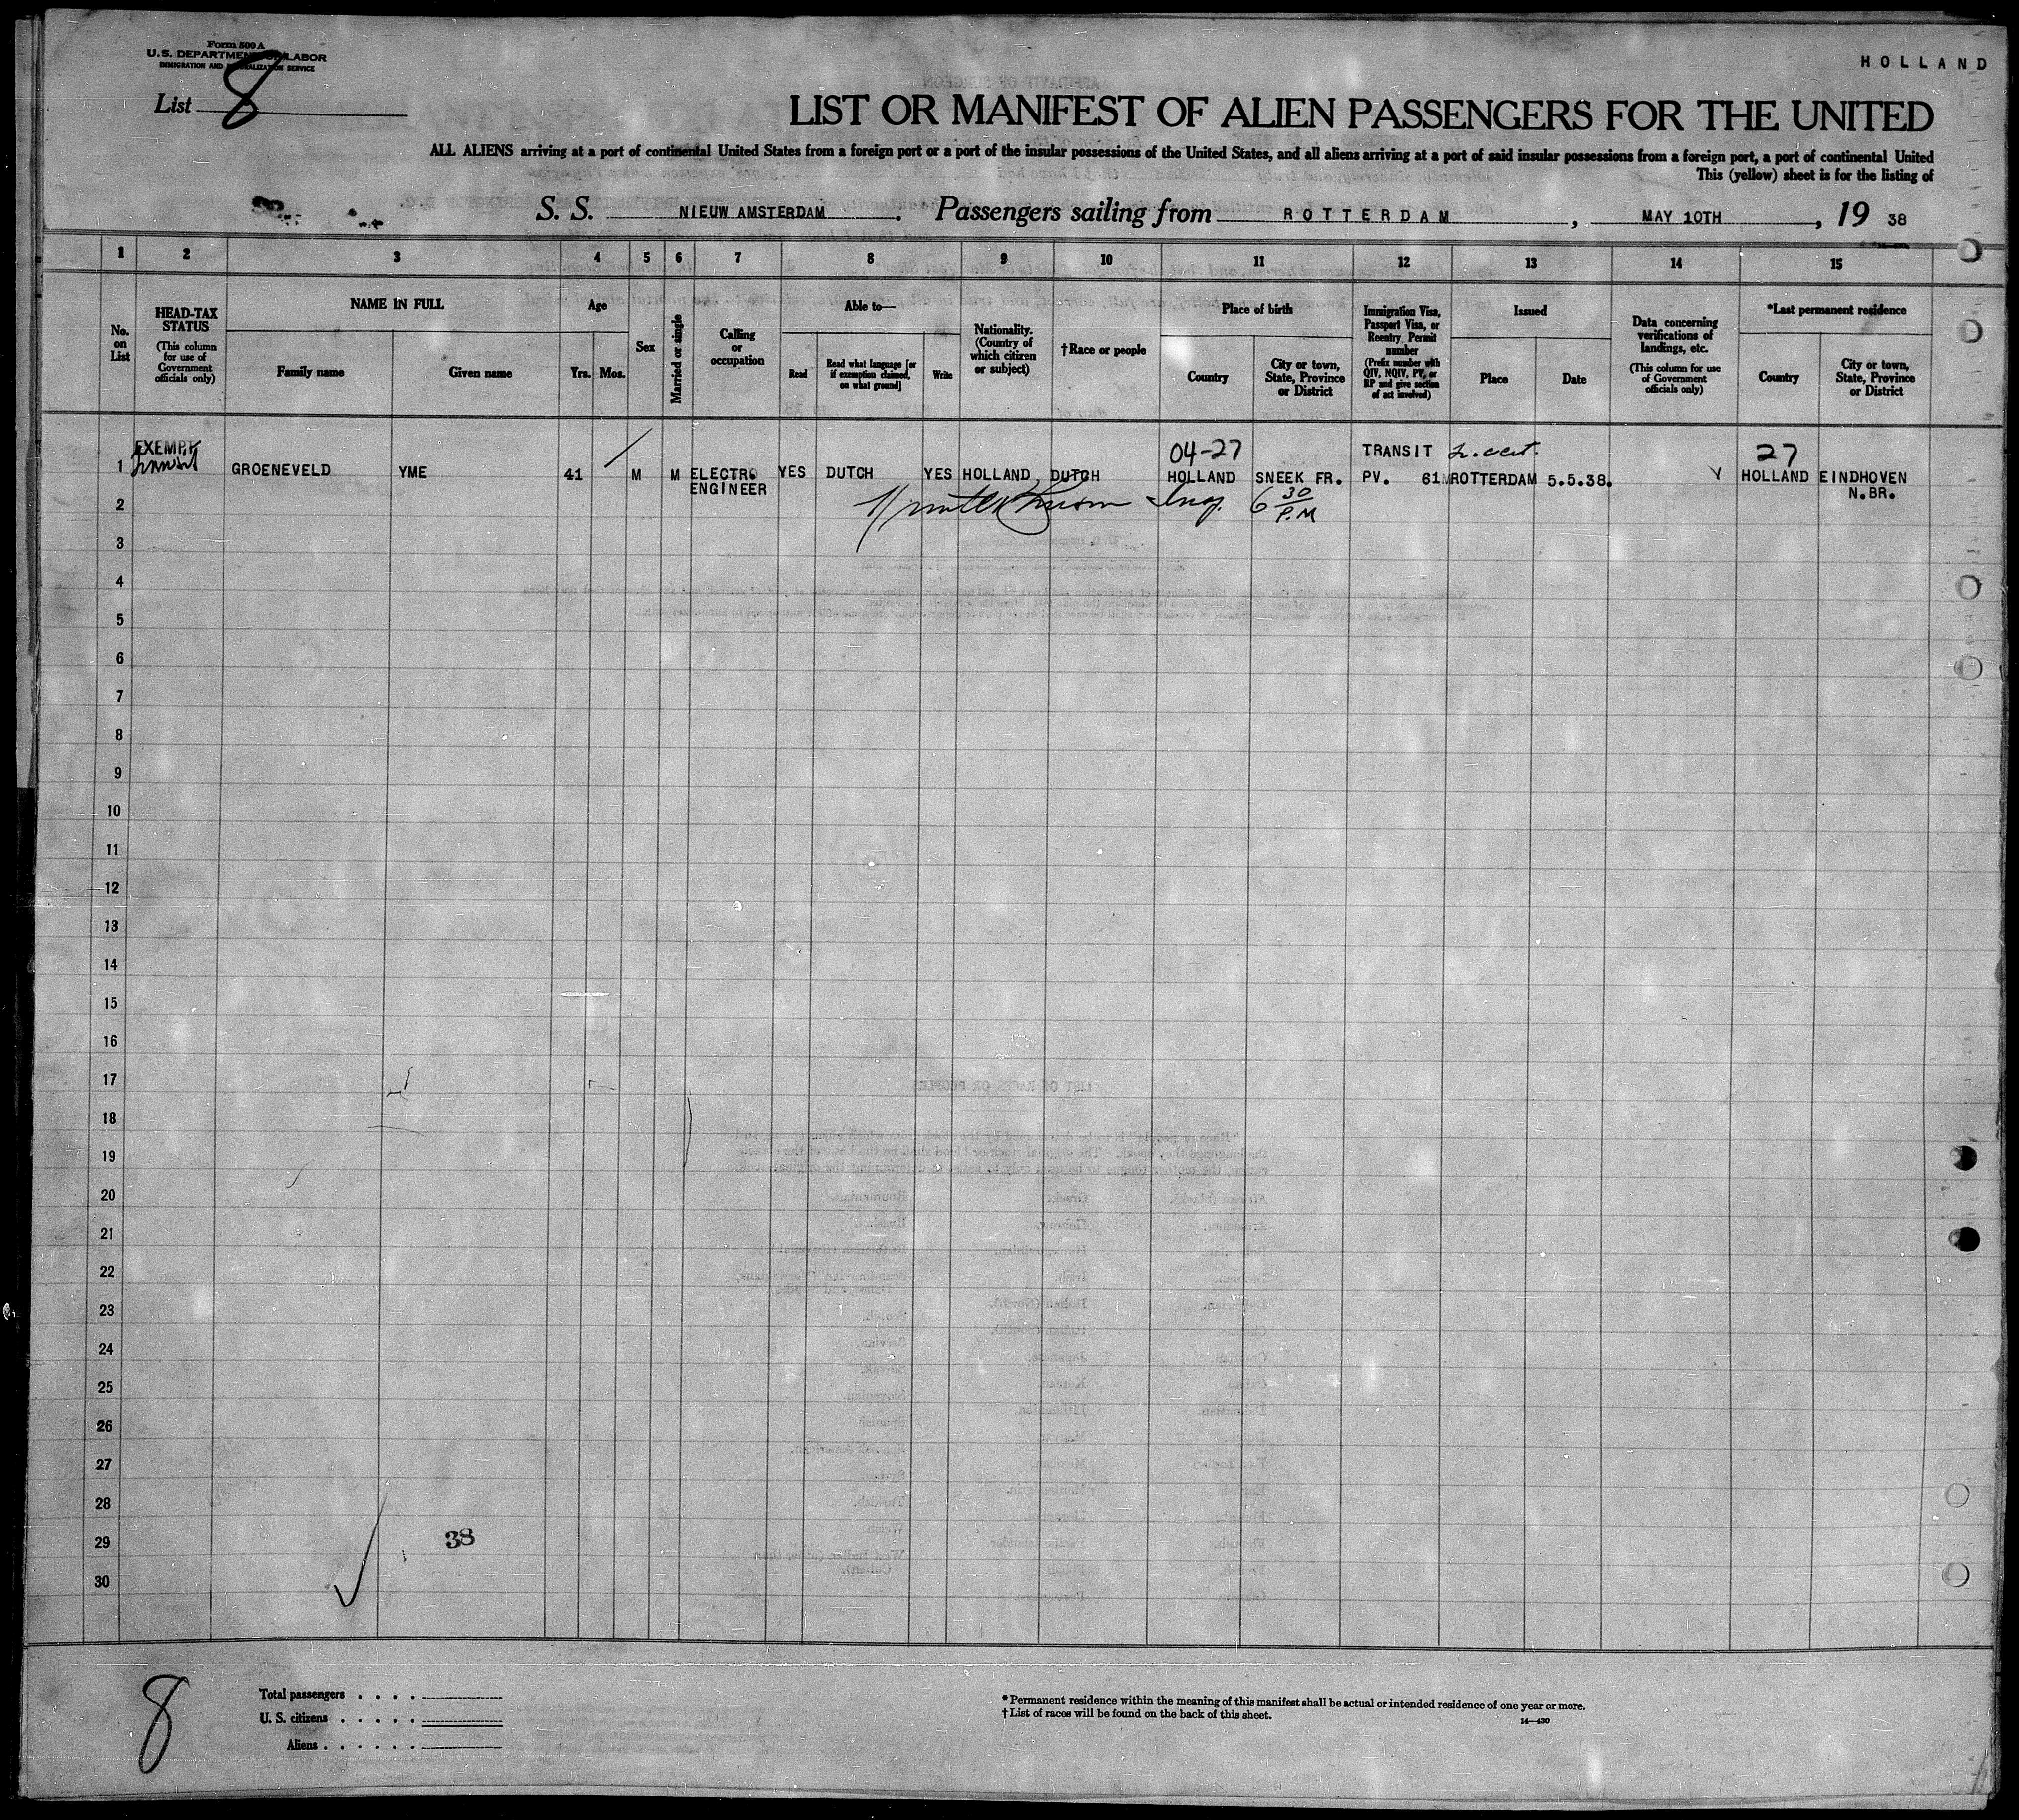 Form 500 A
U.S. DEPARTMENT OF LABOR
IMMIGRATION AND NATURALIZATION SERVICE
HOLLAND
List 8
LIST OR MANIFEST OF ALIEN PASSENGERS FOR THE UNITED
ALL ALIENS arriving at a port of continental United States from a foreign port or a port of the insular possessions of the United States, and all aliens arriving at a port of said insular possessions from a foreign port, a port of continental United
This (yellow) sheet is for the listing of
S. S. NIEUW AMSTERDAM. Passengers sailing from ROTTERDAM, MAY 10TH, 19 38
1 2 3 4 5 6 7 8 9 10 11 12 13 14 15
No. on List
HEAD-TAX STATUS
(This column for use of Government officials only)
NAME IN FULL
Family name
Given name
Age
Yrs.
Mos.
Sex
Married or single
Calling or occupation
Able to—
Read
Read what language [or if exemption claimed, on what ground]
Write
Nationality. (Country of which citizen or subject)
†Race or people
Place of birth
Country
City or town, State, Province or District
Immigration Visa, Passport Visa, or Reentry Permit number
(Prefix number with QIV, NQIV, PV, or RP and give section of act involved)
Issued
Place
Date
Data concerning verifications of landings, etc.
(This column for use of Government officials only)
*Last permanent residence
Country
City or town, State, Province or District
EXEMPT 04-27 TRANSIT 27
transit
1 GROENEVELD YME 41 M M ELECTRO YES DUTCH YES HOLLAND DUTCH HOLLAND SNEEK FR. PV. 61 ROTTERDAM 5.5.38. HOLLAND EINDHOVEN
ENGINEER N.BR.
2 Insp. 6 30 P.M
3
4
5
6
7
8
9
10
11
12
13
14
15
16
17
18
19
20
21
22
23
24
25
26
27
28
29 38
30
8
Total passengers . . . .
U. S. citizens . . . . .
Aliens . . . . . .
* Permanent residence within the meaning of this manifest shall be actual or intended residence of one year or more.
† List of races will be found on the back of this sheet.
14—430